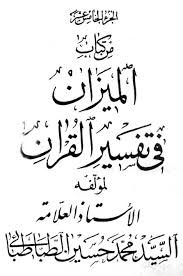 الجزء الخامس عشر
من كتاب
الميزان
في تفسير القرآن
لمؤلفه
الأستاذ العلامة
السيد محمد حسين الطباطبائي